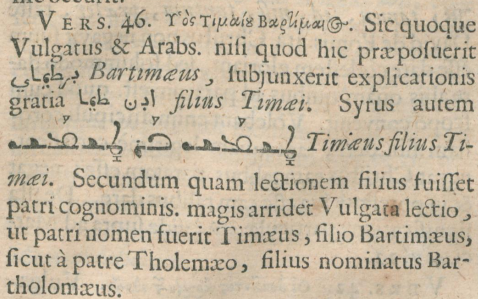 VERS. 46. Υἱὸς Τιμαίȣ Βαρτίμαι☉. Sic quoque
Vulgatus & Arabs. niſi quod hic præpoſuerit
برطيماي Bartimæus, ſubjunxerit explicationis
gratia ابن طيما filius Timæi. Syrus autem
ܛܝܡܝ ܒܪ ܛܝܡܝ Timæus filius Ti-
mæi. Secundum quam lectionem filius fuiſſet
patri cognominis. magis arridet Vulgata lectio,
ut patri nomen fuerit Timæus, filio Bartimæus,
ſicut à patre Tholemæo, filius nominatus Bar-
tholomæus.